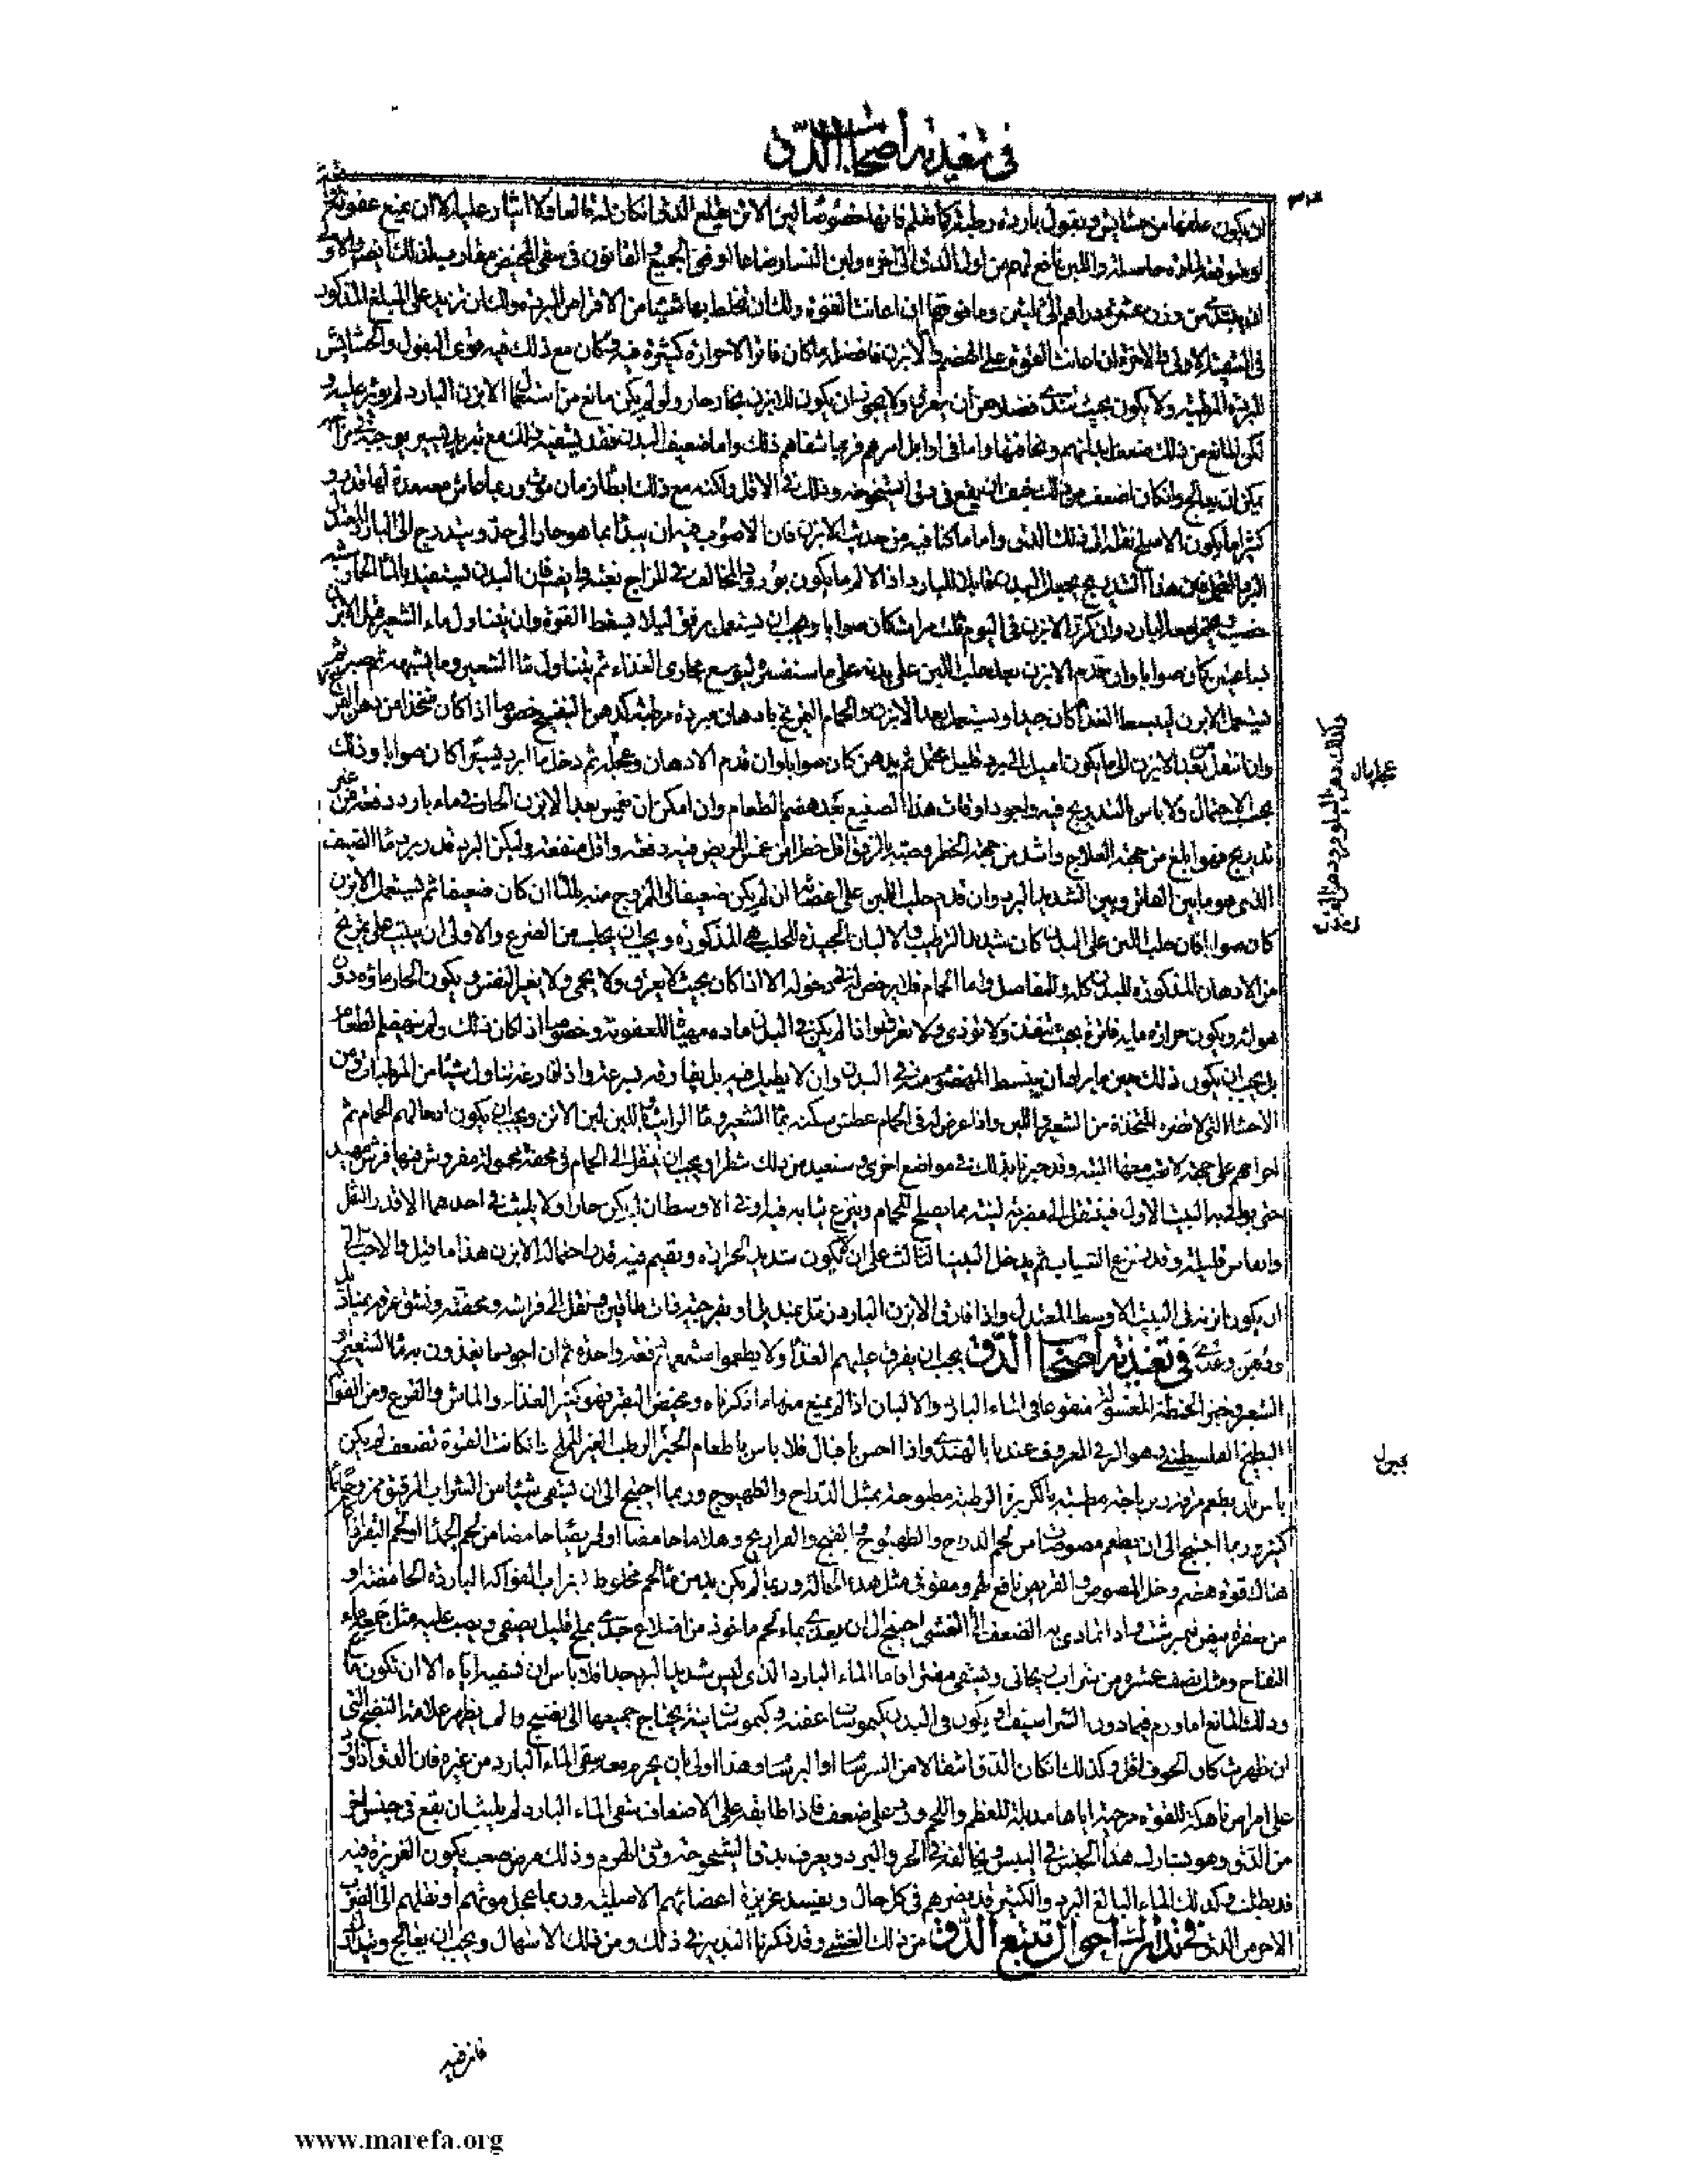 في تغذية أصحاب الدق
ان يكون علفها من حشايش وبقول باردة رطبة كما تعلم فانها خصوصا لبن الاتن يقلع الدق ان كان له قالعا ولا اثار عليه الا ان يمنع عفونة
واللبن نافع لهم من اول الدق الى اخره ولبن النساء رضاعا اوفق الجميع القانون في سقي المخيض
من وزن عشرة دراهم الى ثلثين وما فوقها ان اعانت القوة ولك ان تخلط بها شيئا من الاقراص المبردة ولك ان تزيد على المبلغ المذكور
ان اعانت القوة على الهضم الابزن فافضله ما كان فاترا لا حرارة كثيرة فيه وكان مع ذلك فيه قوى البقول والحشايش
المبردة المرطبة ولا يكون بحيث فضلا عن ان يعرق ولا يجوز ان يكون للابزن بخار حار ولو لم يكن مانع من استعمال الابزن البارد لم يوثر عليه
لكن المانع من ذلك ضعف ابدانهم ونحافتها واما في اوايل امرهم فربما شفاهم ذلك واما ضعيف البدن فقد يشفيه ذلك مع تبريد يسير
يمكن ان يعالج وان كان اضعف من ذلك خيف ان يقع في دق الشيخوخة وذلك في الاقل ولكنه مع ذلك ابطأ زمان موت وربما عاش معه مدة لها قدر و
كثيرا ما يكون الاصلح نقله الى ذلك الدق واما ما كنا فيه من حديث الابزن فان الاصوب فيه ان يبدأ بما هو حار الى حد ويتدرج الى البارد
هذا التدريج يجعل البدن قابلا للبارد اذ الالم ما يكون بورود المخالف في المزاج بغتة وايضا فان البدن يستفيد بالماء الحار
بعد البارد وان كرر الابزن في اليوم ثلث مرات كان صوابا ويجب ان يستعمل برفق ليلا يسقط القوة وان يتناول ماء الشعير قبل الابزن
بساعتين كان صوابا وان قدم الابزن بعد حلب اللبن على بدنه على ما سنفسره ليوسع مجاري الغذاء ثم يتناول ماء الشعير وما يشبهه ثم صبر
يستعمل الابزن ليبسط الغذاء كان جيدا ويستعمل بعد الابزن والحمام التمريخ بادهان مبردة مرطبة كدهن البنفسج خصوصا اذا كان متخذا من دهن القرع
وان انتقل بعد الابزن الى ما يكون اميل الى برد قليل محتمل ثم يدهن كان صوابا وان قدم الادهان وعجله ثم دخل ماء ابرد يسيرا كان صوابا وذلك
بحسب الاحتمال ولا باس بالتدريج فيه واجود اوقات هذا الصنيع بعد هضم الطعام وان امكن ان يغمس بعد الابزن الحار في ماء بارد دفعة من غير
تدريج فهو ابلغ من جهة العلاج واشد من جهة الخطر وصبه بالرفق اقل خطرا من غمس المريض فيه دفعة واقل منفعة وليكن البرد قدر برد ماء الصيف
الذي هو ما بين الفاتر وبين الشديد البرد وان قدم حلب اللبن على اعضائه ان لم يكن ضعيفا او المزوج منه بالماء ان كان ضعيفا ثم يستعمل الابزن
كان صوابا فان حلب اللبن على البدن كان شديد الترطيب والالبان الجيدة للحلب هي المذكورة ويجب ان يحلب من الضرع والاولى ان
من الادهان المذكورة للبدن كله والمفاصل واما الحمام فلا يرخص لهم في دخوله الا اذا كان بحيث لا يعرق ولا يحمي ولا يغير النفس ويكون الحار ماؤه دون
هوائه ويكون حرارة مائه فاترة بحيث تنفذ ولا توذي ولا تعرق واذا لم يكن في البدن مادة مهيئة للعفونة وخصوصا اذ كان ذلك ولم ينهضم الطعام
بل يجب ان يكون ذلك حين ما يراد ان ينبسط المهضوم منه في البدن وان لا يطيل فيه بل يفارقه بسرعة واذا فارقه تناول شيئا من المرطبات ومن
الاحشاء التي لا تضره المتخذة من الشعير واللبن واذا عرض له في الحمام عطش سكنه بماء الشعير وماء الرائب واللبن لبن الاتن ويجب ان يكون ادخالهم الحمام ثم
اخراجهم على جهة لا تعب معها البتة وقد خبرنا بذلك في مواضع اخرى وسنعيد من ذلك شطرا ويجب ان ينقل الى الحمام في محفة محمولة مفروش فيها فرش مهيد
حتى يوافى به البيت الاول فينقل الى مضربة لينة مما يصلح للحمام وينزع ثيابه فيه او في الاوسط ان لم يكن حارا ولا يلبث في احدهما الا قدر النقل
وانفاس قليلة وقد ينزع الثياب ثم يدخل البيت الثالث على ان لا يكون شديد الحرارة ويقيم فيه قدر احتماله الابزن هذا ما قيل والاحب الي
ان يكون ابزنه في البيت الاوسط المعتدل واذا فارق الابزن البارد زمل بمنديل او بفرجية ذات طاقين وينقل الى فراشه ومحفته ونشف عرقه بمناديل
ودهن وغذي في تغذية اصحاب الدق يجب ان يفرق عليهم الغذاء ولا يطعموا شبعهم دفعة واحدة ثم ان اجود ما يغذون به ماء الشعير و
الشعير وخبز الحنطة المغسولة منقوعا في الماء البارد والالبان اذا لم يمنع منها ما ذكرناه ومخيض البقر فهو كثير الغذاء والماش والقرع ومن الفواكه
البطيخ الفلسطيني وهو الرقي المعروف عندنا بالهندي واذا احس باقبال فلا باس باطعام الخبز الرطب الغير المملح فان كانت القوة تضعف لم يكن
باس بان يطعم مرقة زيرباجة مطيبة بالكزبرة الرطبة مطبوخة بمثل الدراج والطيهوج وربما احتيج الى ان يسقى شيئا من الشراب الرقيق ممزوجا بماء
كثير وربما احتيج الى ان يطعم مصوصات من لحم الدراج والطيهوج والقبج والفراريج وهلاما حامضا او قريصا حامضا من لحم الجداء او لحم البقر اذا كان
هناك قوة هضم وخل المصوص والقريص نافع لهم ومقوي مثل هذه الحالة وربما لم يكن بد من ماء لحم مخلوط بشراب الفواكه الباردة الحامضة او
من صفرة بيض نيمبرشت واذا تمادى به الضعف الى الغشي احتيج الى ان يغذى بماء لحم ماخوذ من اضلاع جدي بملح قليل يصفى ويصب عليه مثل ماء
التفاح ومثل نصف عشره من شراب ريحاني ويسقى مفترا فاما الماء البارد الذي ليس شديد البرد جدا فلا باس ان تسقيه اياه الا ان يكون مانع
وذلك المانع اما ورم فيما دون الشراسيف او يكون في البدن كيموسات عفنة وكيموسات نية يحتاج جميعها الى نضج ولما يظهر علامة النضج التي
ان ظهرت كان الخوف اقل وكذلك ان كان الدق انتقالا من السرسام او البرسام وهذا اولى بان يحرم معه سقي الماء البارد من غيره فان الدق اذا ورد
على امراض ناهكة للقوة مرخية اياها مذبلة للعظم واللحم ورد على ضعف فاذا طابقه على الاضعاف سقي الماء البارد لم يلبث ان يقع في جنس اخر
من الدق وهو يشارك هذا الجنس في اليبس ويخالفه في الحر والبرد ويعرف بدق الشيخوخة ودق الهرم وذلك مرض صعب يكون الغريزة فيه
قد بطلت وكذلك الماء البالغ البرد والكثير قد يضرهم في كل حال ويفسد غريزة اعضائهم الاصلية وربما عجل موتهم او نقلهم الى الضرب
الاخر من الدق في تدارك احوال تتبع الدق من ذلك الغشي وقد ذكرنا التدبير في ذلك ومن ذلك الاسهال ويجب ان يعالج
وكذلك دهن النيلوفر ودهن القرع
www.marefa.org